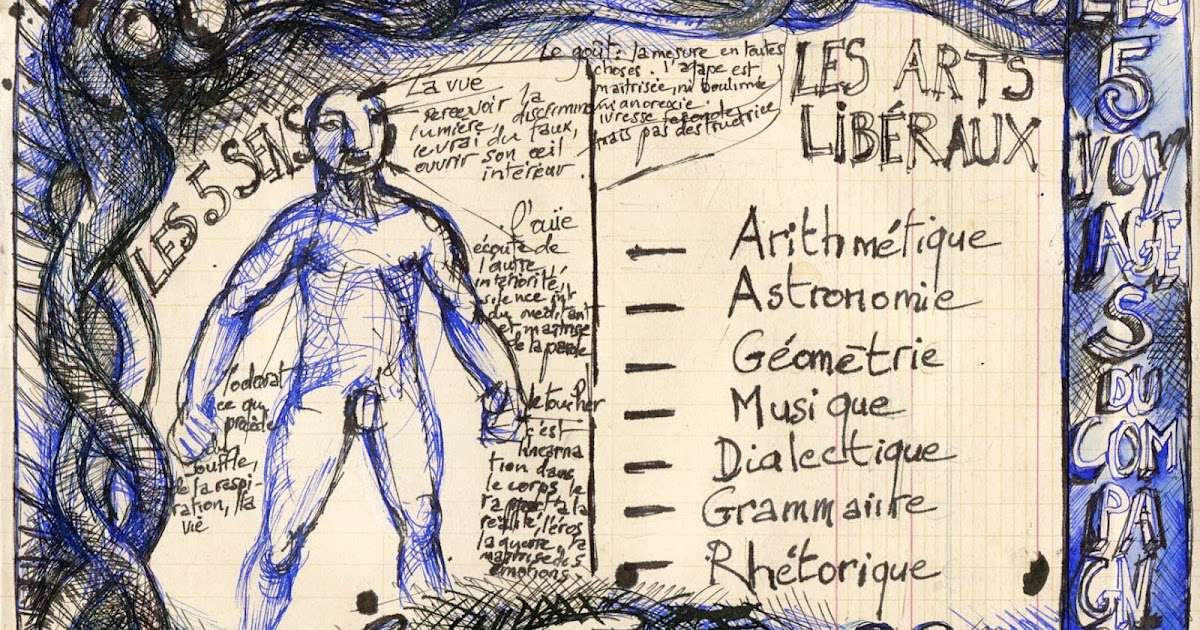 LES 5 SENS
La vue
percevoir la
lumière, discerner
le vrai du faux,
ouvrir son œil
intérieur.
Le goût : la mesure en toutes
choses. l'agape est
maîtrisée, ni boulimie
ni anorexie.
ivresse
mais pas destructrice
l'ouïe
écoute de
l'autre,
intériorité,
silence
du méditant
et maîtrise
de la parole
l'odorat
ce qui
procède
du
souffle,
de la respi-
ration, la
vie
le toucher
c'est
l'incarna
tion dans
le corps, le
rapport à la
réalité, l'éros
la guerre, la
maîtrise des
émotions.
LES ARTS
LIBÉRAUX
— Arithmétique
— Astronomie
— Géométrie
— Musique
— Dialectique
— Grammaire
— Rhétorique
LES
5
VOY
AGE
S
DU
COM
PA
GN